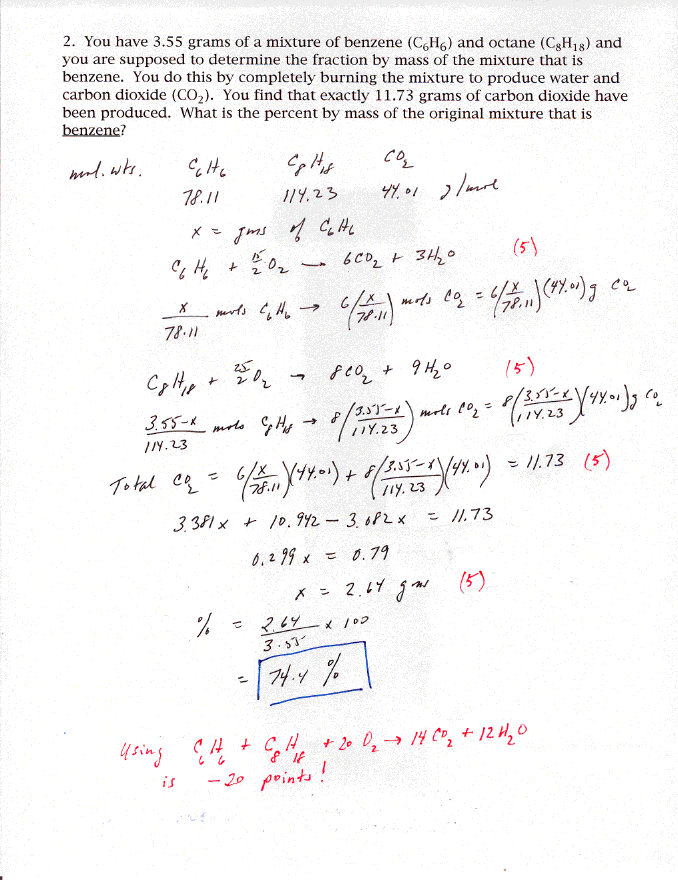 2. You have 3.55 grams of a mixture of benzene (C₆H₆) and octane (C₈H₁₈) and
you are supposed to determine the fraction by mass of the mixture that is
benzene. You do this by completely burning the mixture to produce water and
carbon dioxide (CO₂). You find that exactly 11.73 grams of carbon dioxide have
been produced. What is the percent by mass of the original mixture that is
benzene?
mol. wts. C₆H₆ C₈H₁₈ CO₂
78.11 114.23 44.01 g/mole
x = gms of C₆H₆
C₆H₆ + 15/2 O₂ → 6CO₂ + 3H₂O (5)
x/78.11 mols C₆H₆ → 6(x/78.11) mols CO₂ = 6(x/78.11)(44.01) g CO₂
C₈H₁₈ + 25/2 O₂ → 8CO₂ + 9H₂O (5)
3.55-x/114.23 mols C₈H₁₈ → 8(3.55-x/114.23) mols CO₂ = 8(3.55-x/114.23)(44.01)g CO₂
Total CO₂ = 6(x/78.11)(44.01) + 8(3.55-x/114.23)(44.01) = 11.73 (5)
3.381x + 10.942 - 3.082x = 11.73
0.299x = 0.79
x = 2.64 gms (5)
% = 2.64/3.55 x 100
= 74.4 %
Using C₆H₆ + C₈H₁₈ + 20 O₂ → 14 CO₂ + 12 H₂O
is -20 points!